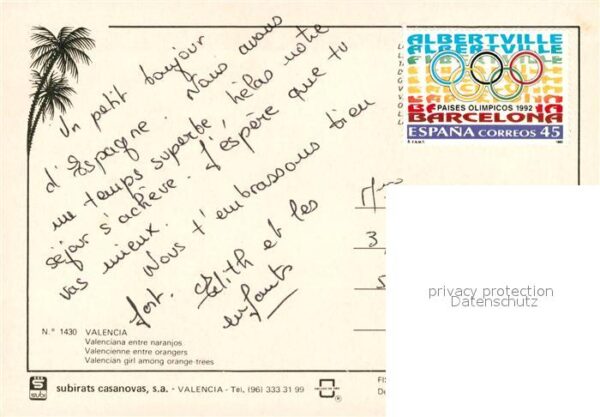 Un petit bonjour
d'Espagne. Nous avons
un temps superbe, hélas notre
séjour s'achève. J'espère que tu
vas mieux.
Nous t'embrassons bien
fort. Edith et les
enfants
ALBERTVILLE
ALBERTVILLE
PAISES OLIMPICOS 1992
BARCELONA
ESPAÑA CORREOS 45
F.N.M.T. 1992
Mme
3,
5
privacy protection
Datenschutz
N.º 1430 VALENCIA
Valenciana entre naranjos
Valencienne entre orangers
Valencian girl among orange-trees
subi
subirats casanovas, s.a. - VALENCIA - Tel. (96) 333 31 99
FI
De